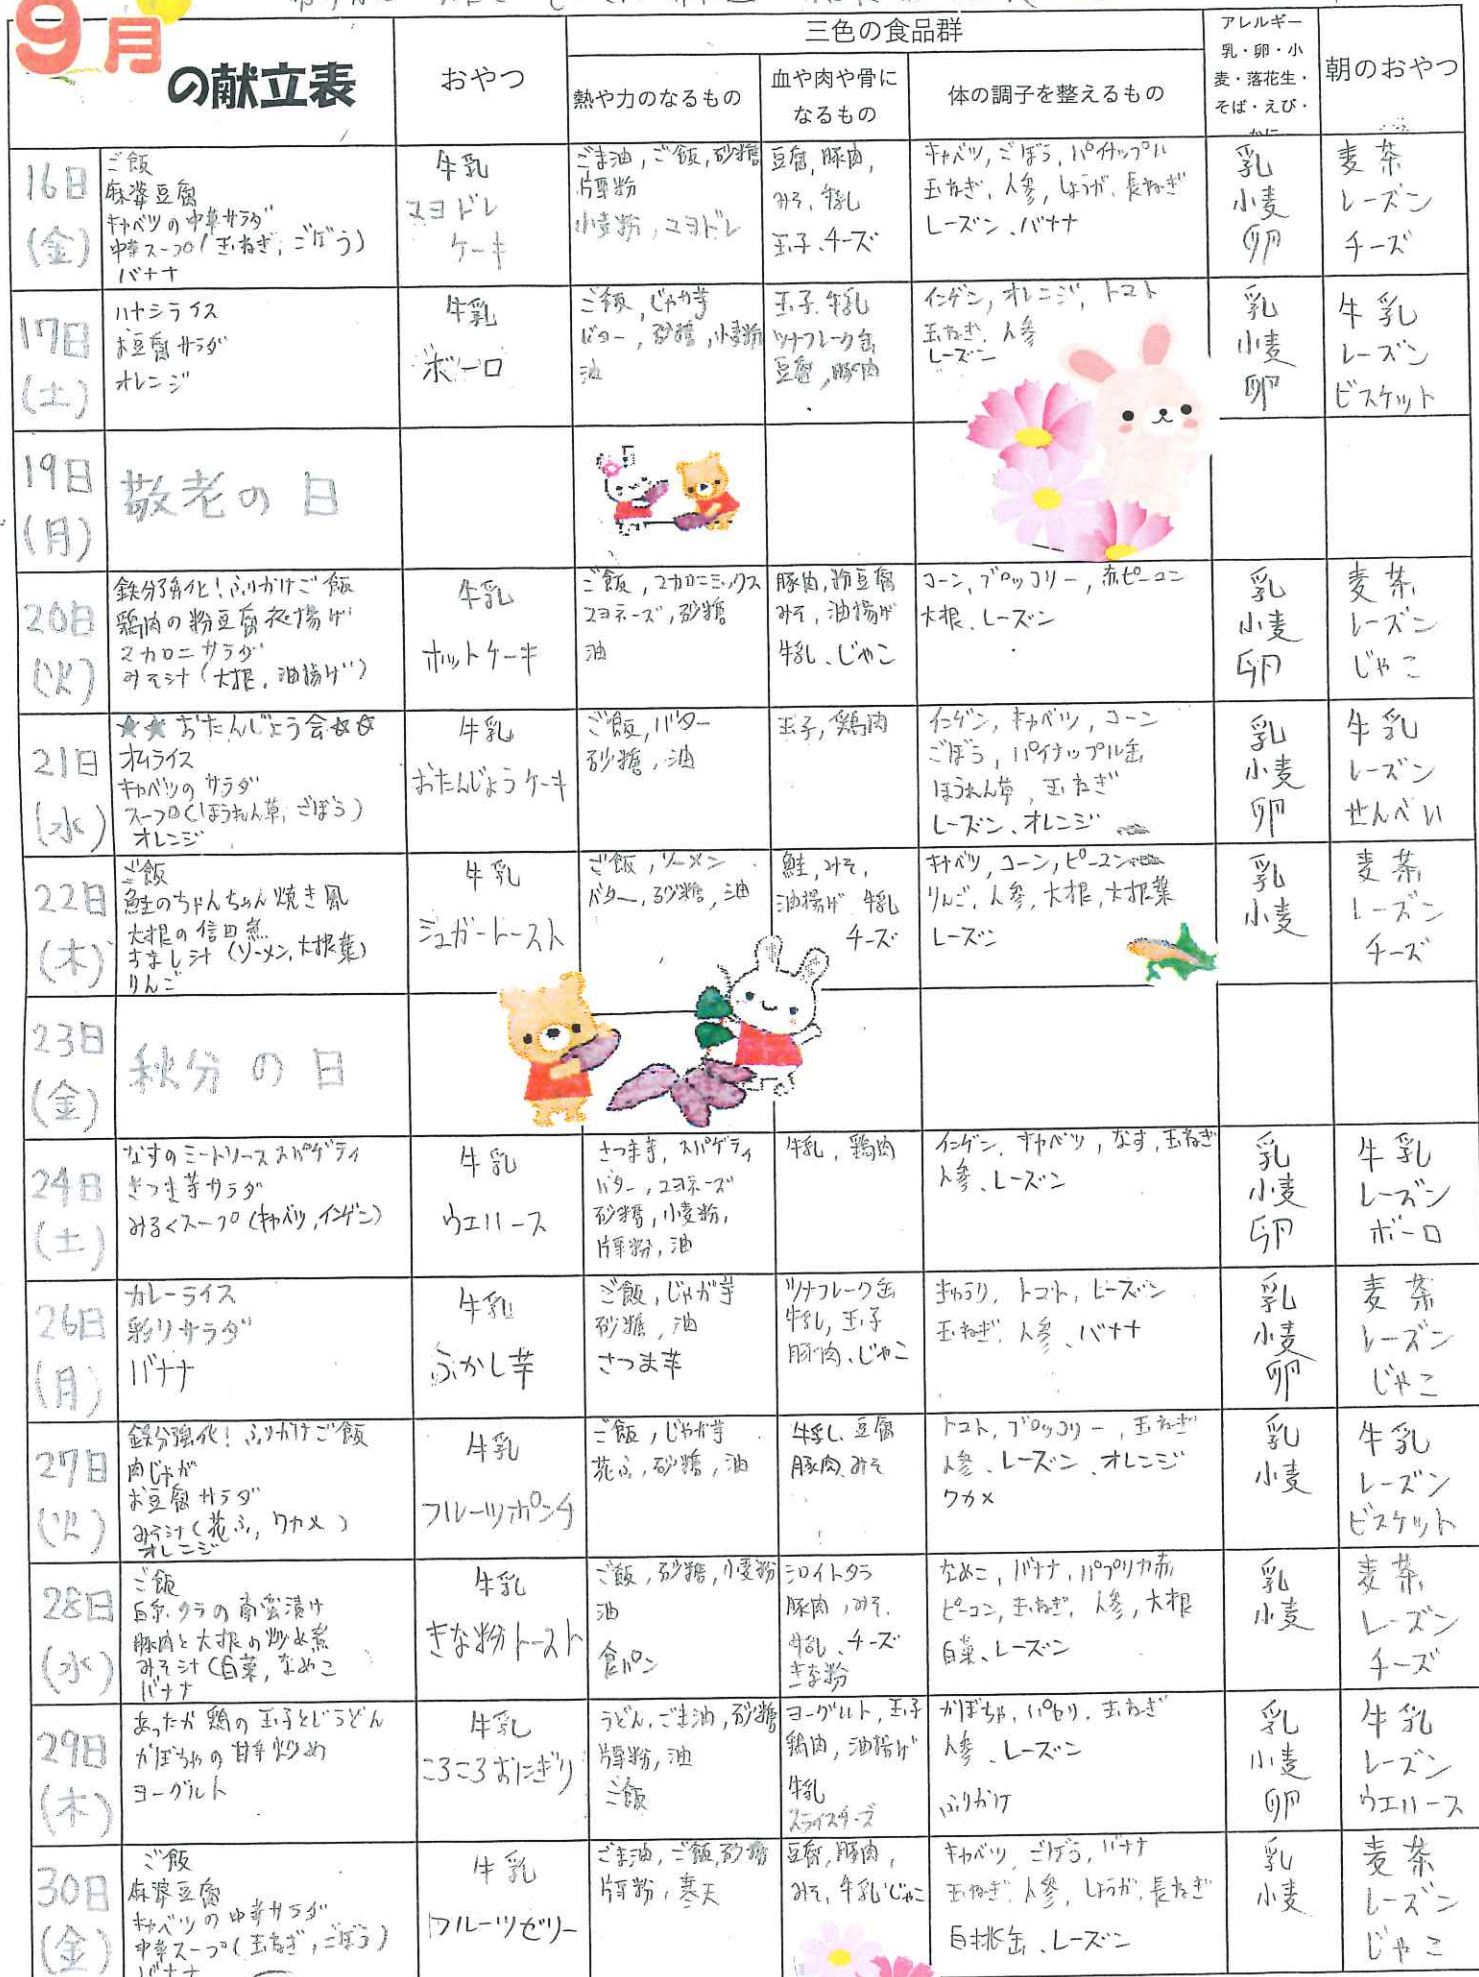 9月
の献立表
おやつ
三色の食品群
熱や力のなるもの
血や肉や骨に
なるもの
体の調子を整えるもの
アレルギー
乳・卵・小
麦・落花生・
そば・えび・
かに
朝のおやつ
16日
(金)
ご飯
麻婆豆腐
キャベツの中華サラダ
中華スープ(玉ねぎ,ごぼう)
バナナ
牛乳
マヨドレ
ケーキ
ごま油,ご飯,砂糖
片栗粉
小麦粉,マヨドレ
豆腐,豚肉,
みそ,牛乳
玉子、チーズ
キャベツ,ごぼう,パイナップル
玉ねぎ,人参,しょうが,長ねぎ
レーズン、バナナ
乳
小麦
卵
麦茶
レーズン
チーズ
17日
(土)
ハヤシライス
お豆腐サラダ
オレンジ
牛乳
ボーロ
ご飯,じゃが芋
バター,砂糖,小麦粉
油
玉子,牛乳
ツナフレーク缶
豆腐,豚肉
インゲン,オレンジ,トマト
玉ねぎ、人参
レーズン
乳
小麦
卵
牛乳
レーズン
ビスケット
19日
(月)
敬老の日
20日
(火)
鉄分強化!ふりかけご飯
鶏肉の粉豆腐衣揚げ
マカロニサラダ
みそ汁(大根,油揚げ)
牛乳
ホットケーキ
ご飯,マカロニミックス
マヨネーズ,砂糖
油
豚肉,粉豆腐
みそ,油揚げ
牛乳、じゃこ
コーン,ブロッコリー,赤ピーマン
大根、レーズン
乳
小麦
卵
麦茶
レーズン
じゃこ
21日
(水)
★★おたんじょう会☆☆
オムライス
キャベツのサラダ
スープ(ほうれん草,ごぼう)
オレンジ
牛乳
おたんじょうケーキ
ご飯,バター
砂糖,油
玉子,鶏肉
インゲン,キャベツ,コーン
ごぼう,パイナップル缶
ほうれん草,玉ねぎ
レーズン、オレンジ
乳
小麦
卵
牛乳
レーズン
せんべい
22日
(木)
ご飯
鮭のちゃんちゃん焼き風
大根の信田煮
すまし汁(ソーメン,大根葉)
りんご
牛乳
シュガートースト
ご飯,ソーメン
バター,砂糖,油
鮭,みそ,
油揚げ 牛乳
チーズ
キャベツ,コーン,ピーマン
りんご,人参,大根,大根葉
レーズン
乳
小麦
麦茶
レーズン
チーズ
23日
(金)
秋分の日
24日
(土)
なすのミートソーススパゲティ
さつま芋サラダ
みるくスープ(キャベツ,インゲン)
牛乳
ウエハース
さつま芋,スパゲティ
バター,マヨネーズ
砂糖,小麦粉,
片栗粉,油
牛乳,鶏肉
インゲン,キャベツ,なす,玉ねぎ
人参、レーズン
乳
小麦
卵
牛乳
レーズン
ボーロ
26日
(月)
カレーライス
彩りサラダ
バナナ
牛乳
ふかし芋
ご飯,じゃが芋
砂糖,油
さつま芋
ツナフレーク缶
牛乳,玉子
豚肉、じゃこ
きゅうり,トマト,レーズン
玉ねぎ,人参、バナナ
乳
小麦
卵
麦茶
レーズン
じゃこ
27日
(火)
鉄分強化!ふりかけご飯
肉じゃが
お豆腐サラダ
みそ汁(花ふ,ワカメ)
オレンジ
牛乳
フルーツポンチ
ご飯,じゃが芋
花ふ,砂糖,油
牛乳、豆腐
豚肉、みそ
トマト,ブロッコリー,玉ねぎ
人参、レーズン、オレンジ
ワカメ
乳
小麦
牛乳
レーズン
ビスケット
28日
(水)
ご飯
白糸タラの南蛮漬け
豚肉と大根の炒め煮
みそ汁(白菜,なめこ
バナナ
牛乳
きな粉トースト
ご飯,砂糖,小麦粉
油
食パン
シロイトタラ
豚肉,みそ,
牛乳、チーズ
きな粉
なめこ,バナナ,パプリカ赤
ピーマン,玉ねぎ,人参,大根
白菜、レーズン
乳
小麦
麦茶
レーズン
チーズ
29日
(木)
あったか鶏の玉子とじうどん
かぼちゃの甘辛炒め
ヨーグルト
牛乳
ころころおにぎり
うどん,ごま油,砂糖
片栗粉,油
ご飯
ヨーグルト,玉子
鶏肉,油揚げ
牛乳
スライスチーズ
かぼちゃ,パセリ,玉ねぎ
人参、レーズン
ふりかけ
乳
小麦
卵
牛乳
レーズン
ウエハース
30日
(金)
ご飯
麻婆豆腐
キャベツの中華サラダ
中華スープ(玉ねぎ,ごぼう)
バナナ
牛乳
フルーツゼリー
ごま油,ご飯,砂糖
片栗粉,寒天
豆腐,豚肉,
みそ,牛乳じゃこ
キャベツ,ごぼう,バナナ
玉ねぎ,人参,しょうが,長ねぎ
白桃缶、レーズン
乳
小麦
麦茶
レーズン
じゃこ